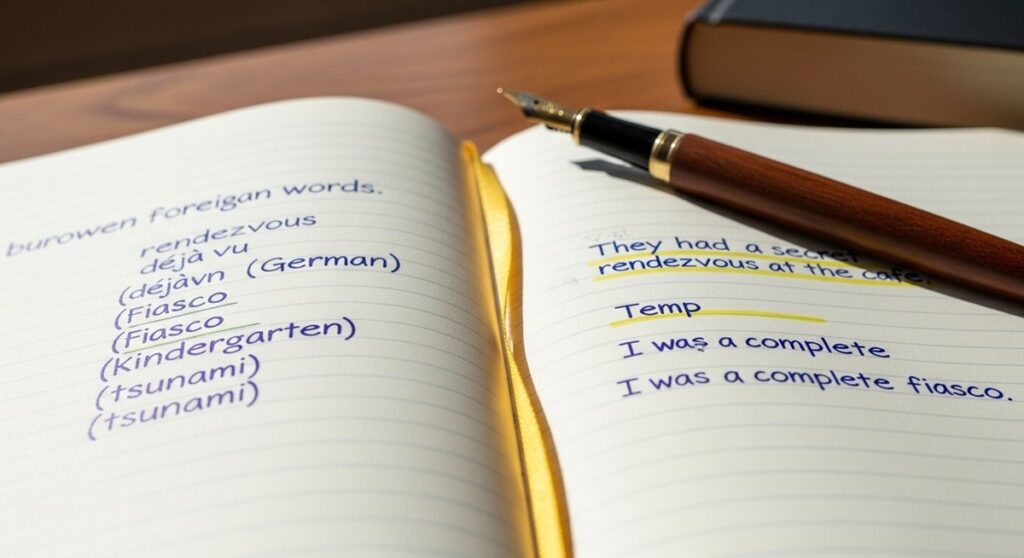 burowen foreigan words.
rendezvous
déjà vu
(déjàvn (German)
(Fiasco
(Fiasco
(Kindergarten)
(tsunami)
(tsunami)
They had a secret
rendezvous at the cafe.
Temp
I was a complete
I was a complete fiasco.